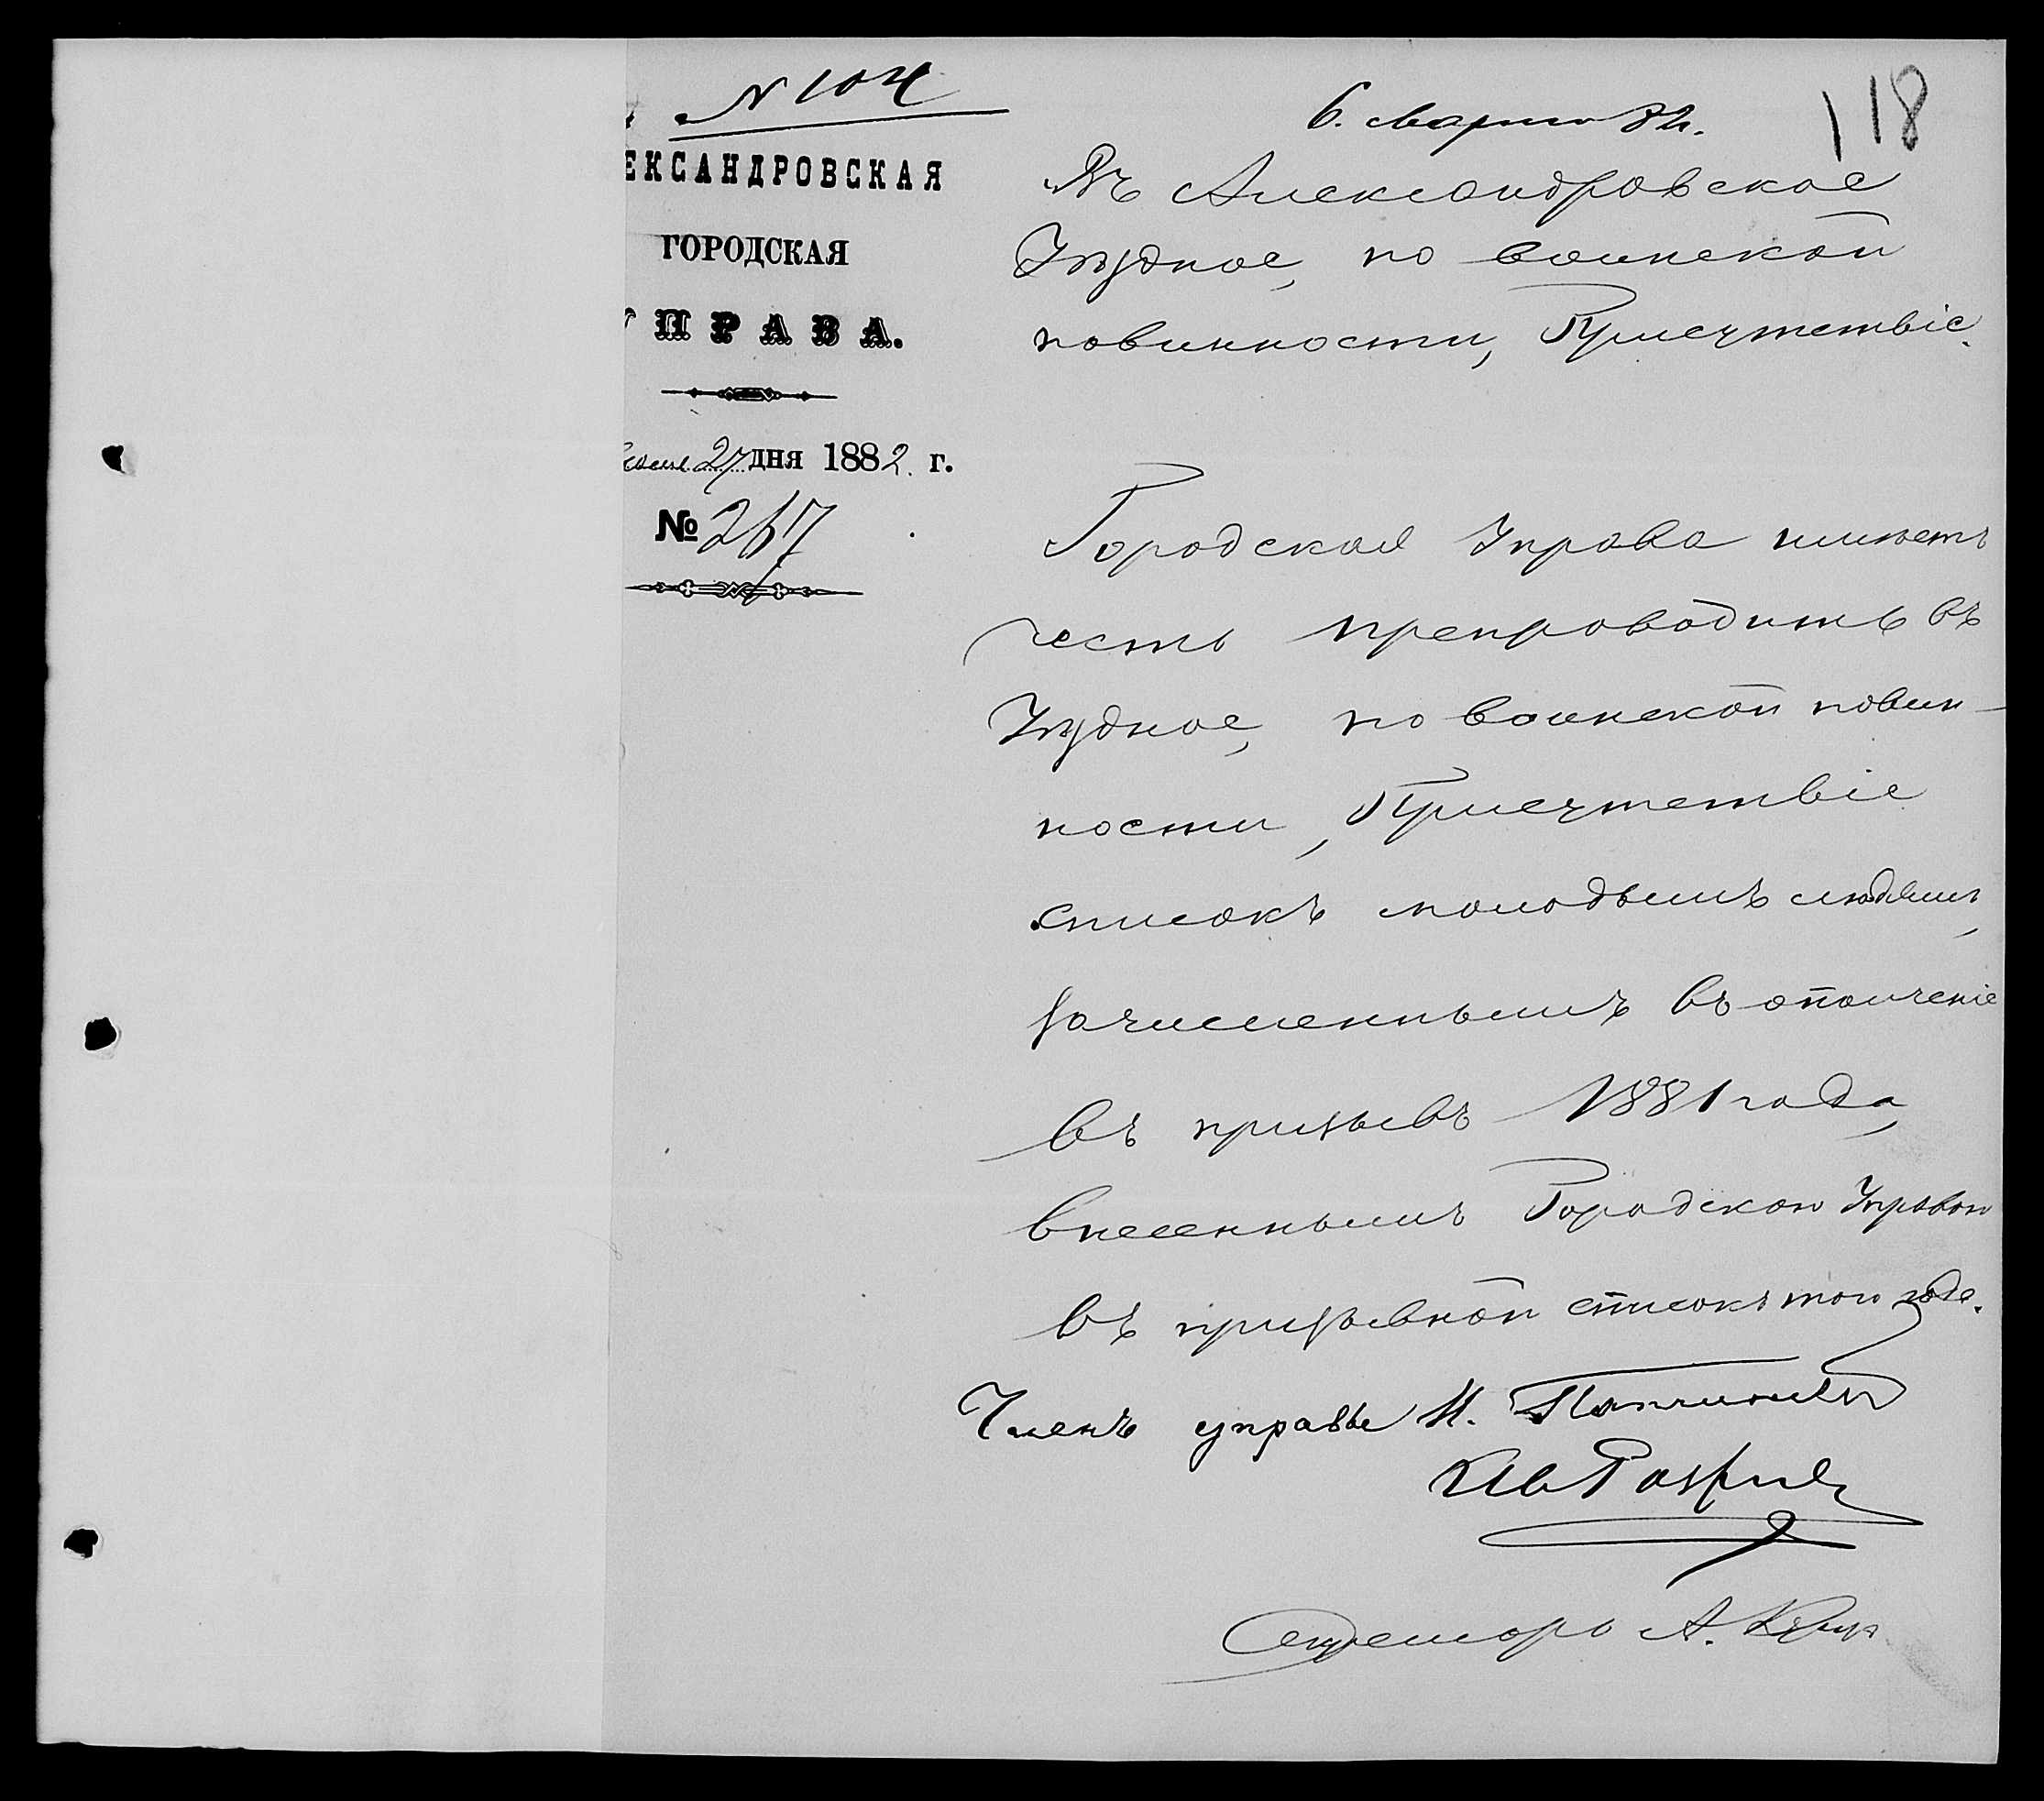 N 104
ЕКСАНДРОВСКАЯ
ГОРОДСКАЯ
УПРАВА.
27 дня 1882 г.
№ 267
6. Марта 82.
118
Въ Александровское
Уѣздное, по воинской
повинности, Присутствіе.
Городская Управа имѣетъ
честь препроводить въ
Уѣздное, по воинской повин-
ности, Присутствіе
списокъ молодымъ людямъ,
зачисленнымъ въ ополченіе
въ призывъ 1881 года,
внесеннымъ Городскою Управою
въ призывной списокъ того года.
Членъ управы И.
Секретарь А.